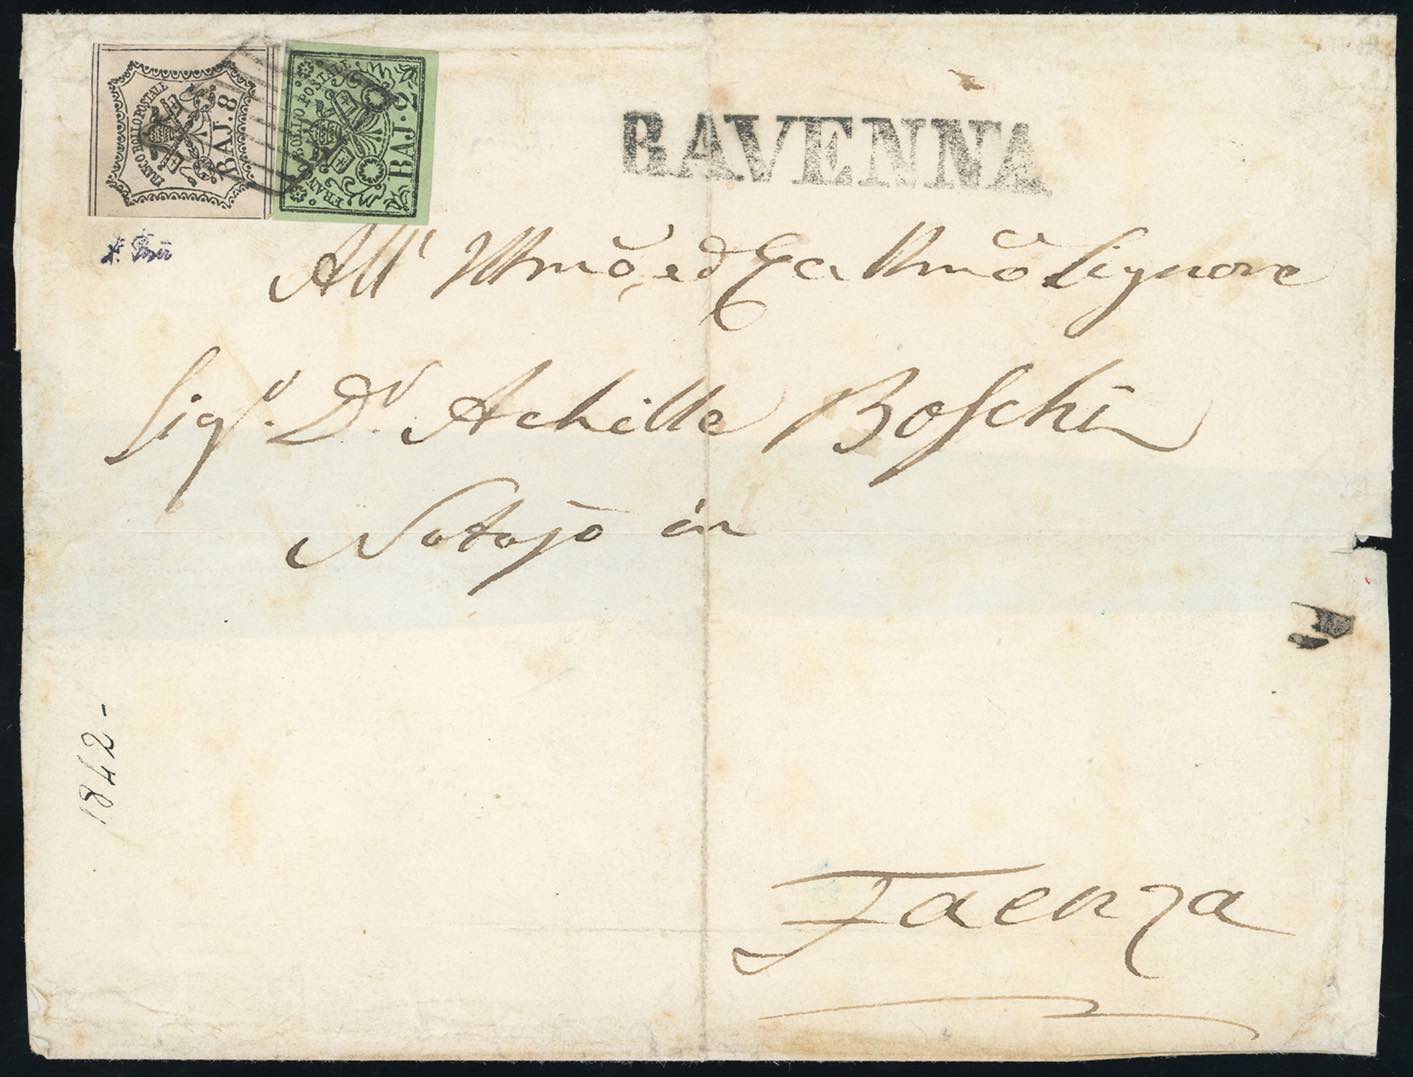 FRANCO BOLLO POSTALE
BAJ. 8
FRANCO BOLLO POSTALE
BAJ. 2
RAVENNA
All' Illmo, ed Ecc Illmo Signore
Sigr. Dr. Achille Boschi
Notajo in
1842-
Faenza